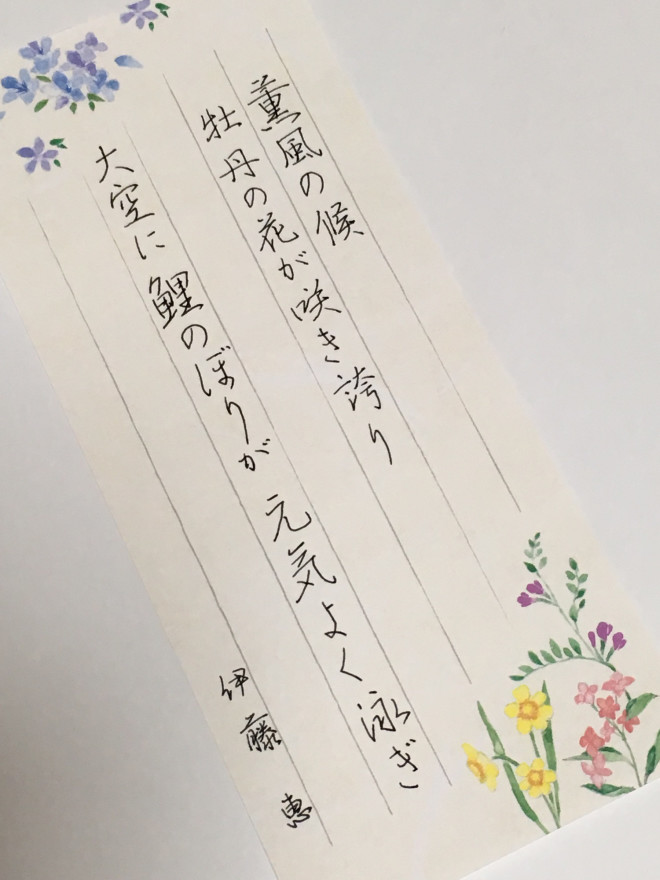 薫風の候
牡丹の花が咲き誇り
大空に鯉のぼりが元気よく泳ぎ
伊藤 恵